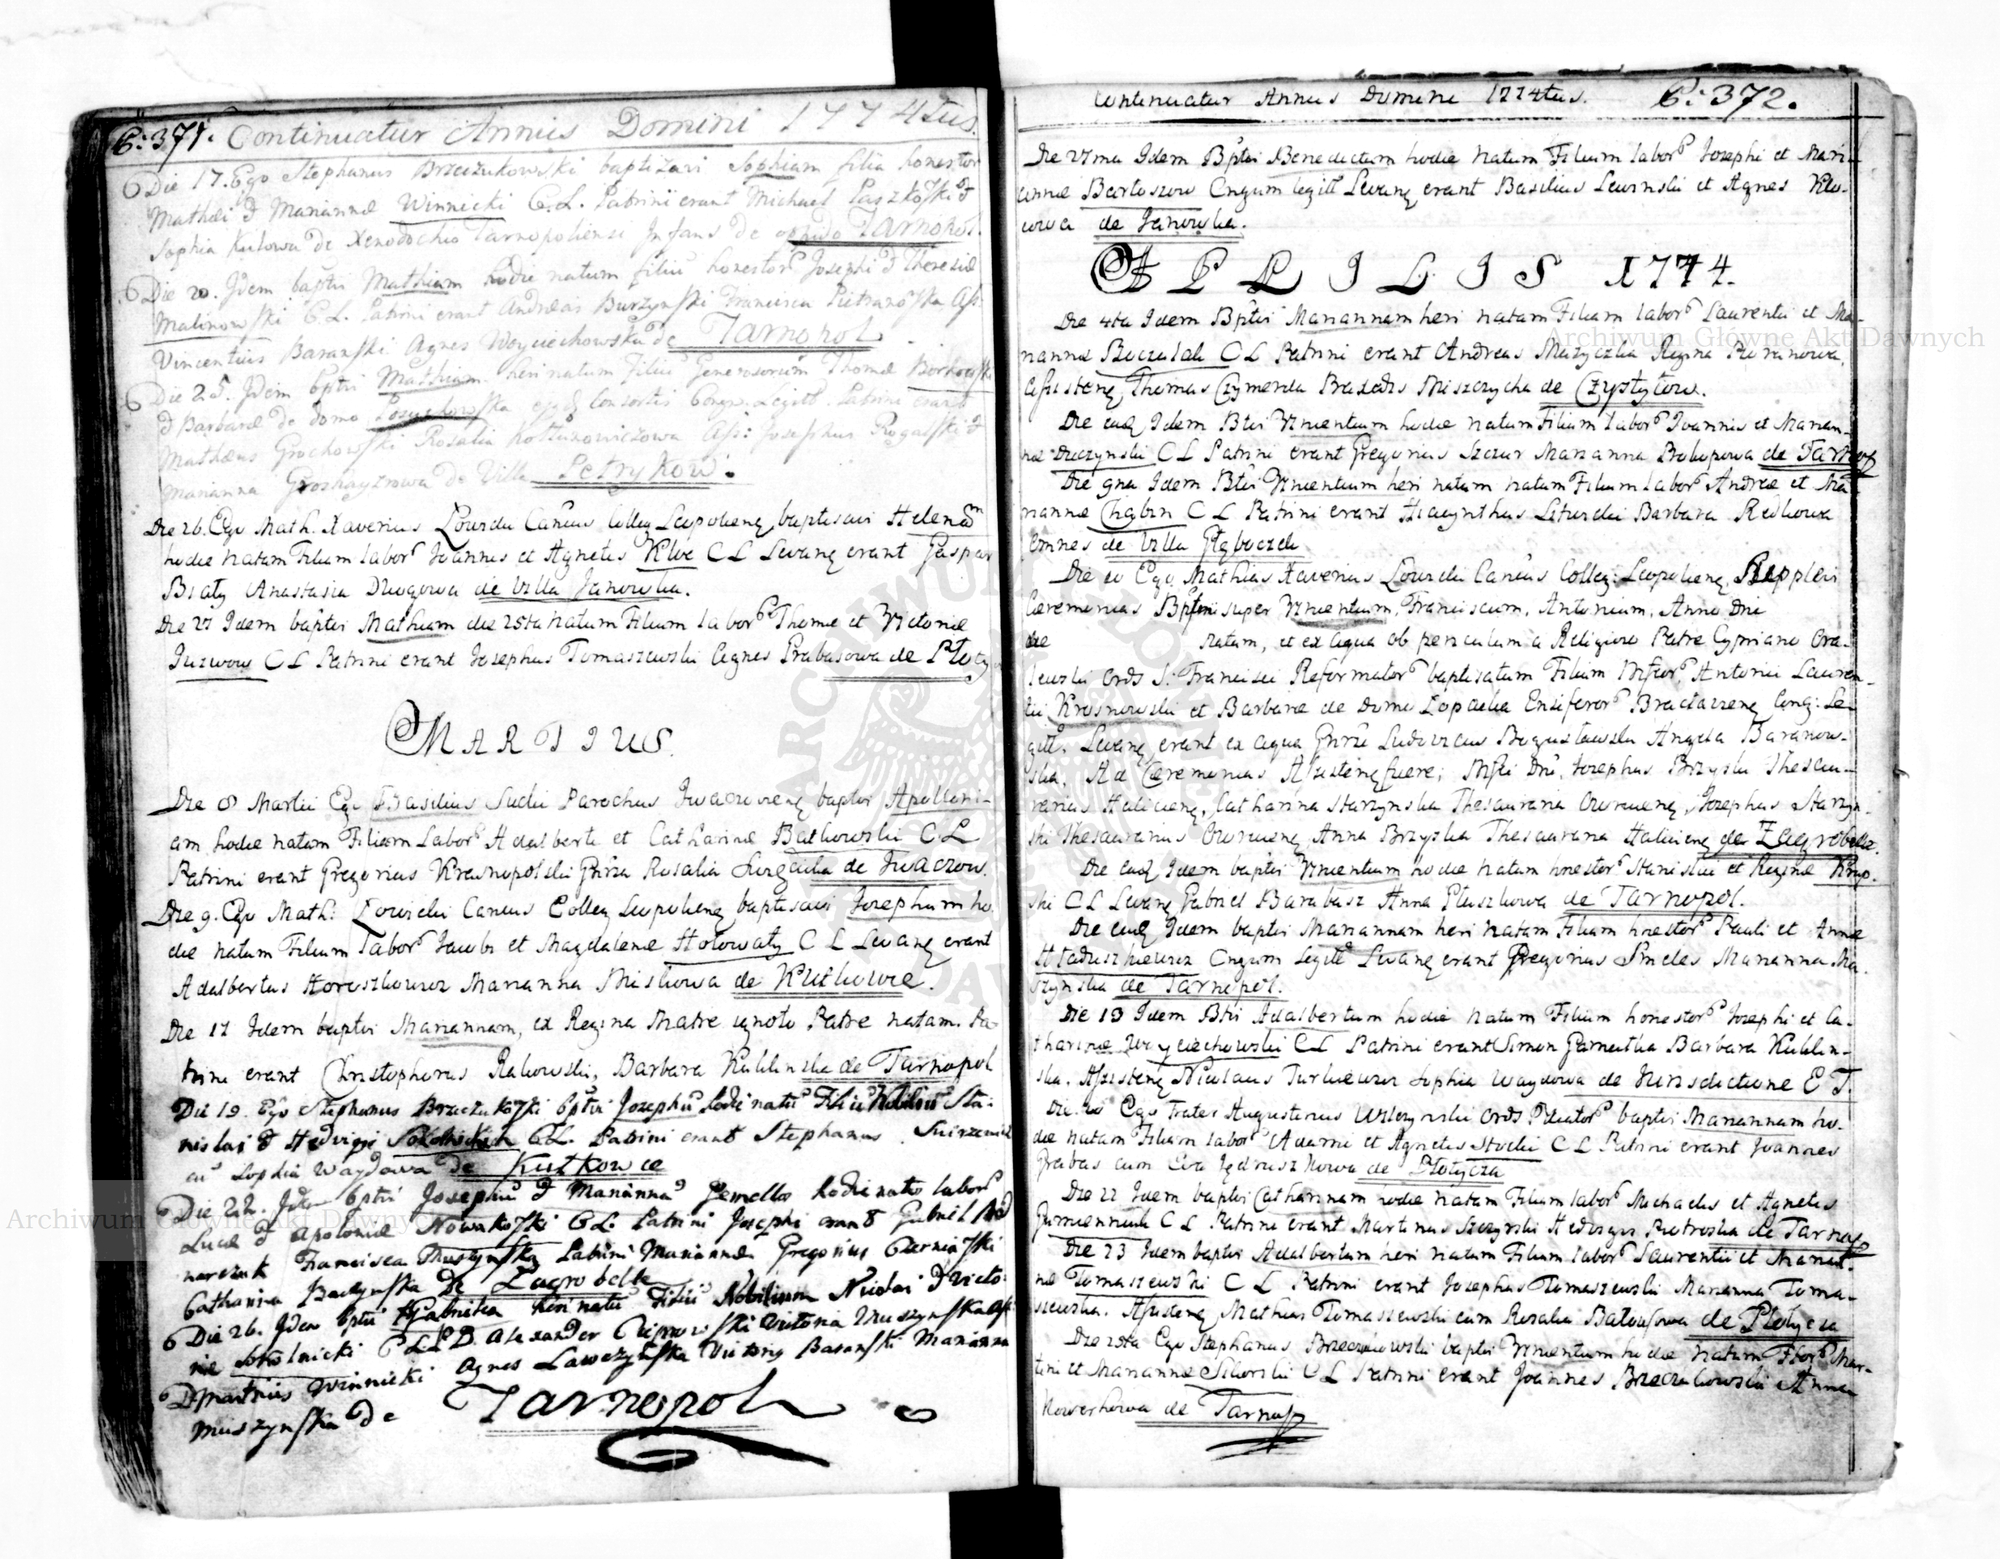 P: 371. Continuatur Annus Domini 1774tus.
Die 17. Ego Stephanus Brzeziukowski baptizavi Sophiam filia honestor
Mathæi & Mariannæ Winnicki C. L. Patrini erant Michael Paszkoski &
Sophia Kulowa de Xenodochio Tarnopoliensi Infans de oppido Tarnopol.
Die 20. Idem baptvi Mathiam hodie natum filiũ honestor Josephi & Theresiæ
Malinowski C. L. Patrini erant Andreas Burzynski Francisca Pietranoska Ass:
Vincentius Baranski Agnes Woyciechowska de Tarnopol
Die 25. Idem bptvi Mathiam heri natum filiũ Generosorum Thomæ Borkowski
& Barbaræ de domo consortis Coniug. Legitt. Patrini erant
Mathæus Grochowski Rosalia Ass: Josephus Rogalski &
Marianna de Villa Petrykow.
Die 26. Ego Math. Xaverius Łowicki Cancus Colleg Leopolieng baptisavi Helenam
hodie natam Filiam labor Joannis et Agnetis Kloc C L Levang erant Gaspar
Biały Anastasia Długowa de Villa Janowka.
Die 27 Idem baptvi Mathiam die 25ta natum Filium labor Thomæ et Victoriæ
Juzwow C L Patrini erant Josephus Tomaszewski Agnes Prabasowa de Płotycz
MARTIUS.
Die 8 Martii Ego Basilius Sudii Parochus Iwaczoveng baptvi Apolloni-
am hodie natam Filiam Labor Adalberti et Catharinæ Bałkowski C L
Patrini erant Gregorius Krasnopolski Rosalia de Iwaczow.
Die 9. Ego Math: Łowicki Cancus Colleg Leopolieng baptisavi Josephum ho
die natum Filium labor Jacobi et Magdalenæ Hołowaty C L Levang erant
Adalbertus Horoszkiewicz Marianna Miskowa de Kutkowce.
Die 17 Idem baptvi Mariannam, ex Regina Matre ignoto Patre natam. Pa-
trini erant Christophorus Rakowski, Barbara Kuklinska de Tarnopol
Die 19. Ego Stephanus Brzeziukoski bptvi Josephũ hodie natũ Filiũ Nobiliũ Sta-
nislai & Hedvigis Sokolnickich C. L. Patrini erant Stephanus
Sophia Waydowa de Kutkowce
Die 22. Idem bptvi Josephũ & Mariannã Gemellos hodie natos labor
Lucæ & Apoloniæ Nowakoski C. L. Patrini Josephi erant Gabriel
Francisca Muszynska Patrini Mariannæ Gregorius Czerniaski
Catharina Baczynska de Zagrobelle
Die 26. Idem bptvi Gabrielem heri natũ Filiũ Nobilium Nicolai & Victo-
riæ Sokolnicki C. L. Alexander Victoria Muszynska Ass:
Winnicki Agnes Ławczynska Victory Baranski Marianna
Muszynska de Tarnopol
Continuatur Annus Domini 1774tus. P: 372.
Die 27ma Idem Bptvi Benedictum hodie natum Filium labor Josephi et Mari-
annæ Bartoszow Cngum legitt Levang erant Basilius Lewinski et Agnes Klo-
cowa de Janowka.
APRILIS 1774.
Die 4ta Idem Bptvi Mariannam heri natam Filiam labor Laurentii et Ma-
riannæ C L Patrini erant Andreas Matyczka Regina Romanowa.
Assisteng Thomas Czymerda Miszczycha de Czystyłow.
Die eadẽ Idem Btvi Vincentium hodie natum Filium labor Joannis et Marian-
næ Duczynski C L Patrini erant Gregorius Szczur Marianna Prokopowa de Tarnop
Die 9na Idem Btvi Vincentium heri natum natum Filium labor Andreæ et Ma-
riannæ Chabin C L Patrini erant Hiacynthus Barbara Redkowa
omnes de Villa Głęboczek
Die 10 Ego Mathias Xaverius Łowicki Cancus Colleg: Leopolieng Supplevi
Cæremonias Bptmi super Vincentium, Franciscum, Antonium, Anno Dni
die natum, et ex aqua ob periculum a Religioso Patre Cypriano Ora-
czewski Ords S. Francisci Reformator baptisatum Filium Mgfcor Antonii Lauren-
tii Krosnowski et Barbaræ de Domo Łopacka Ensiferor Bracłavieng Cong: Le-
gitt. Levang erant ex aqua Gnrsi Ludovicus Bogusławski Angela Baranow-
ska. Ad Cæremonias Assisteng fuere; Mgfci Dni, Josephus Brzyski Thesau-
rarius Halicieng, Catharina Starzynska Thesauraria Owrucieng, Josephus Starzyn-
ski Thesaurarius Owrucieng Anna Brzyska Thesauraria Halicieng de Zagrobelle.
Die eadẽ Idem baptvi Vincentium hodie natum honestor Stanislai et Reginæ Krup-
ski C L Levang Gabriel Barabasz Anna Pluszkowa de Tarnopol.
Die eadẽ Idem baptvi Mariannam heri natam Filiam honestor Pauli et Annæ
Hładuszkiewicz Cngum Legitt Levang erant Gregorius Smeles Marianna Ma-
szynska de Tarnopol.
Die 13 Idem Btvi Adalbertum hodie natum Filium honestor Josephi et Ca-
tharinæ Woyciechowski C L Patrini erant Simon Garncarka Barbara Kuklin-
ska. Assisteng Nicolaus Turkiewicz Sophia Waydowa de Jurisdictione E T.
Die 20 Ego Frater Augustinus Wilczynski Ords Pdicator baptvi Mariannam ho-
die natam Filiam labor Adami et Agnetis Hocki C L Patrini erant Joannes
Prabas cum Eva Jędruszkowa de Płotycza
Die 22 Idem baptvi Catharinam hodie natam Filiam labor Michaelis et Agnetis
Gumienniuk C L Patrini erant Martinus Szczyrski Hedvigis Piotroska de Tarnop
Die 23 Idem baptvi Adalbertum heri natum Filium labor Laurentii et Marian-
næ Tomaszewski C L Patrini erant Josephus Tomaszewski Marianna Toma-
szewska. Assisteng Mathias Tomaszewski cum Rosalia Batowsowa de Płotycza
Die 25ta Ego Stephanus Brzeziukowski baptvi Vincentium hodie natum Mar-
tini et Mariannæ Sikorski C L Patrini erant Joannes Brzeziukowski Anna
Kowerkowa de Tarnop